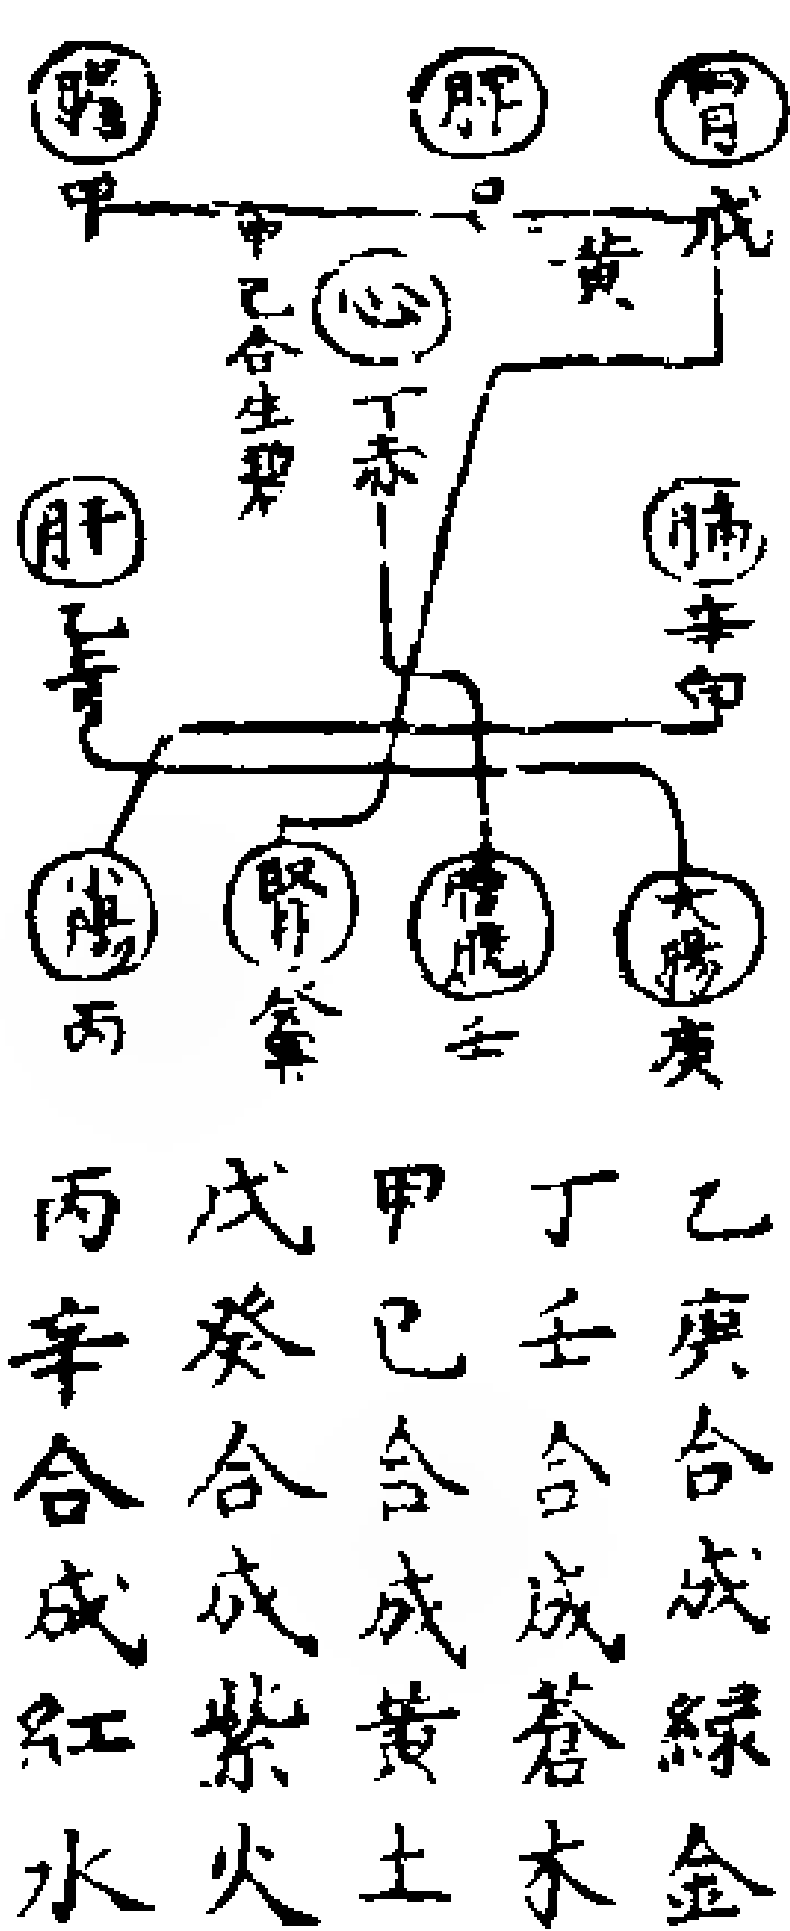 膽 脾 胃
甲 己 戊
甲己合生碧
黃
心
丁赤
肝 肺
乙青 辛白
小腸 腎 膀胱 大腸
丙 癸黑 壬 庚
乙庚合成綠金
丁壬合成蒼木
甲己合成黃土
戊癸合成紫火
丙辛合成紅水